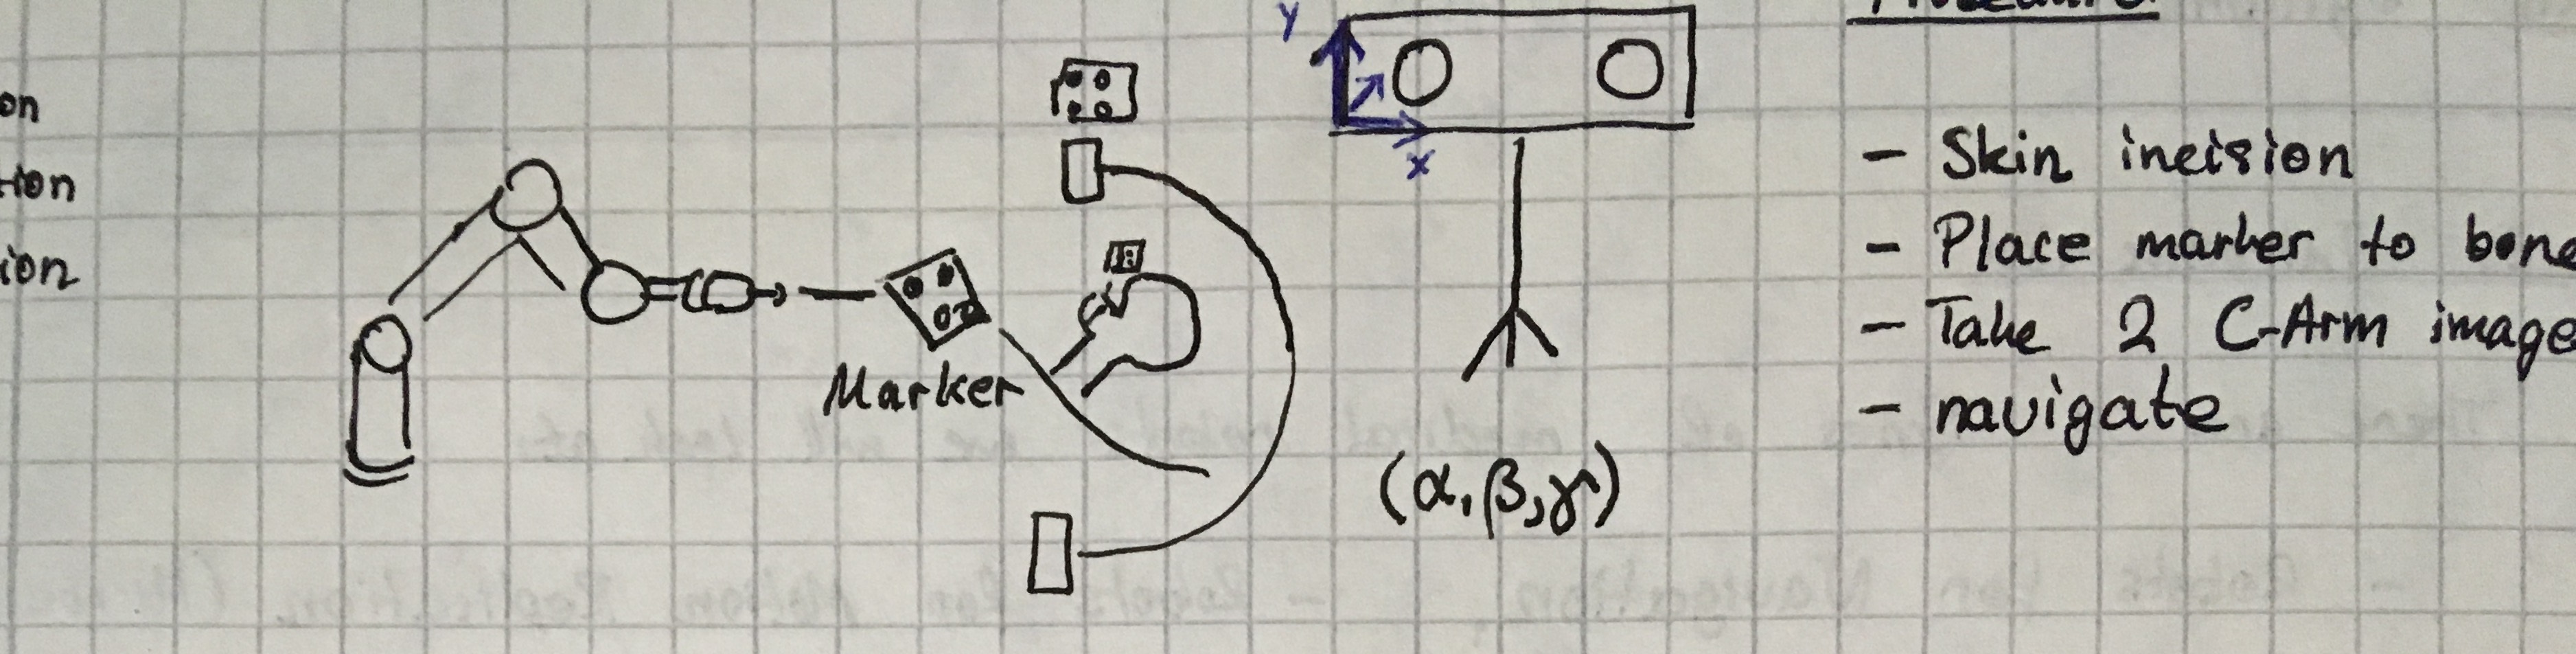 on
tion
ion
Marker
Y
X
(α, β, γ)
- Skin incision
- Place marker to bone
- Take 2 C-Arm image
- navigate